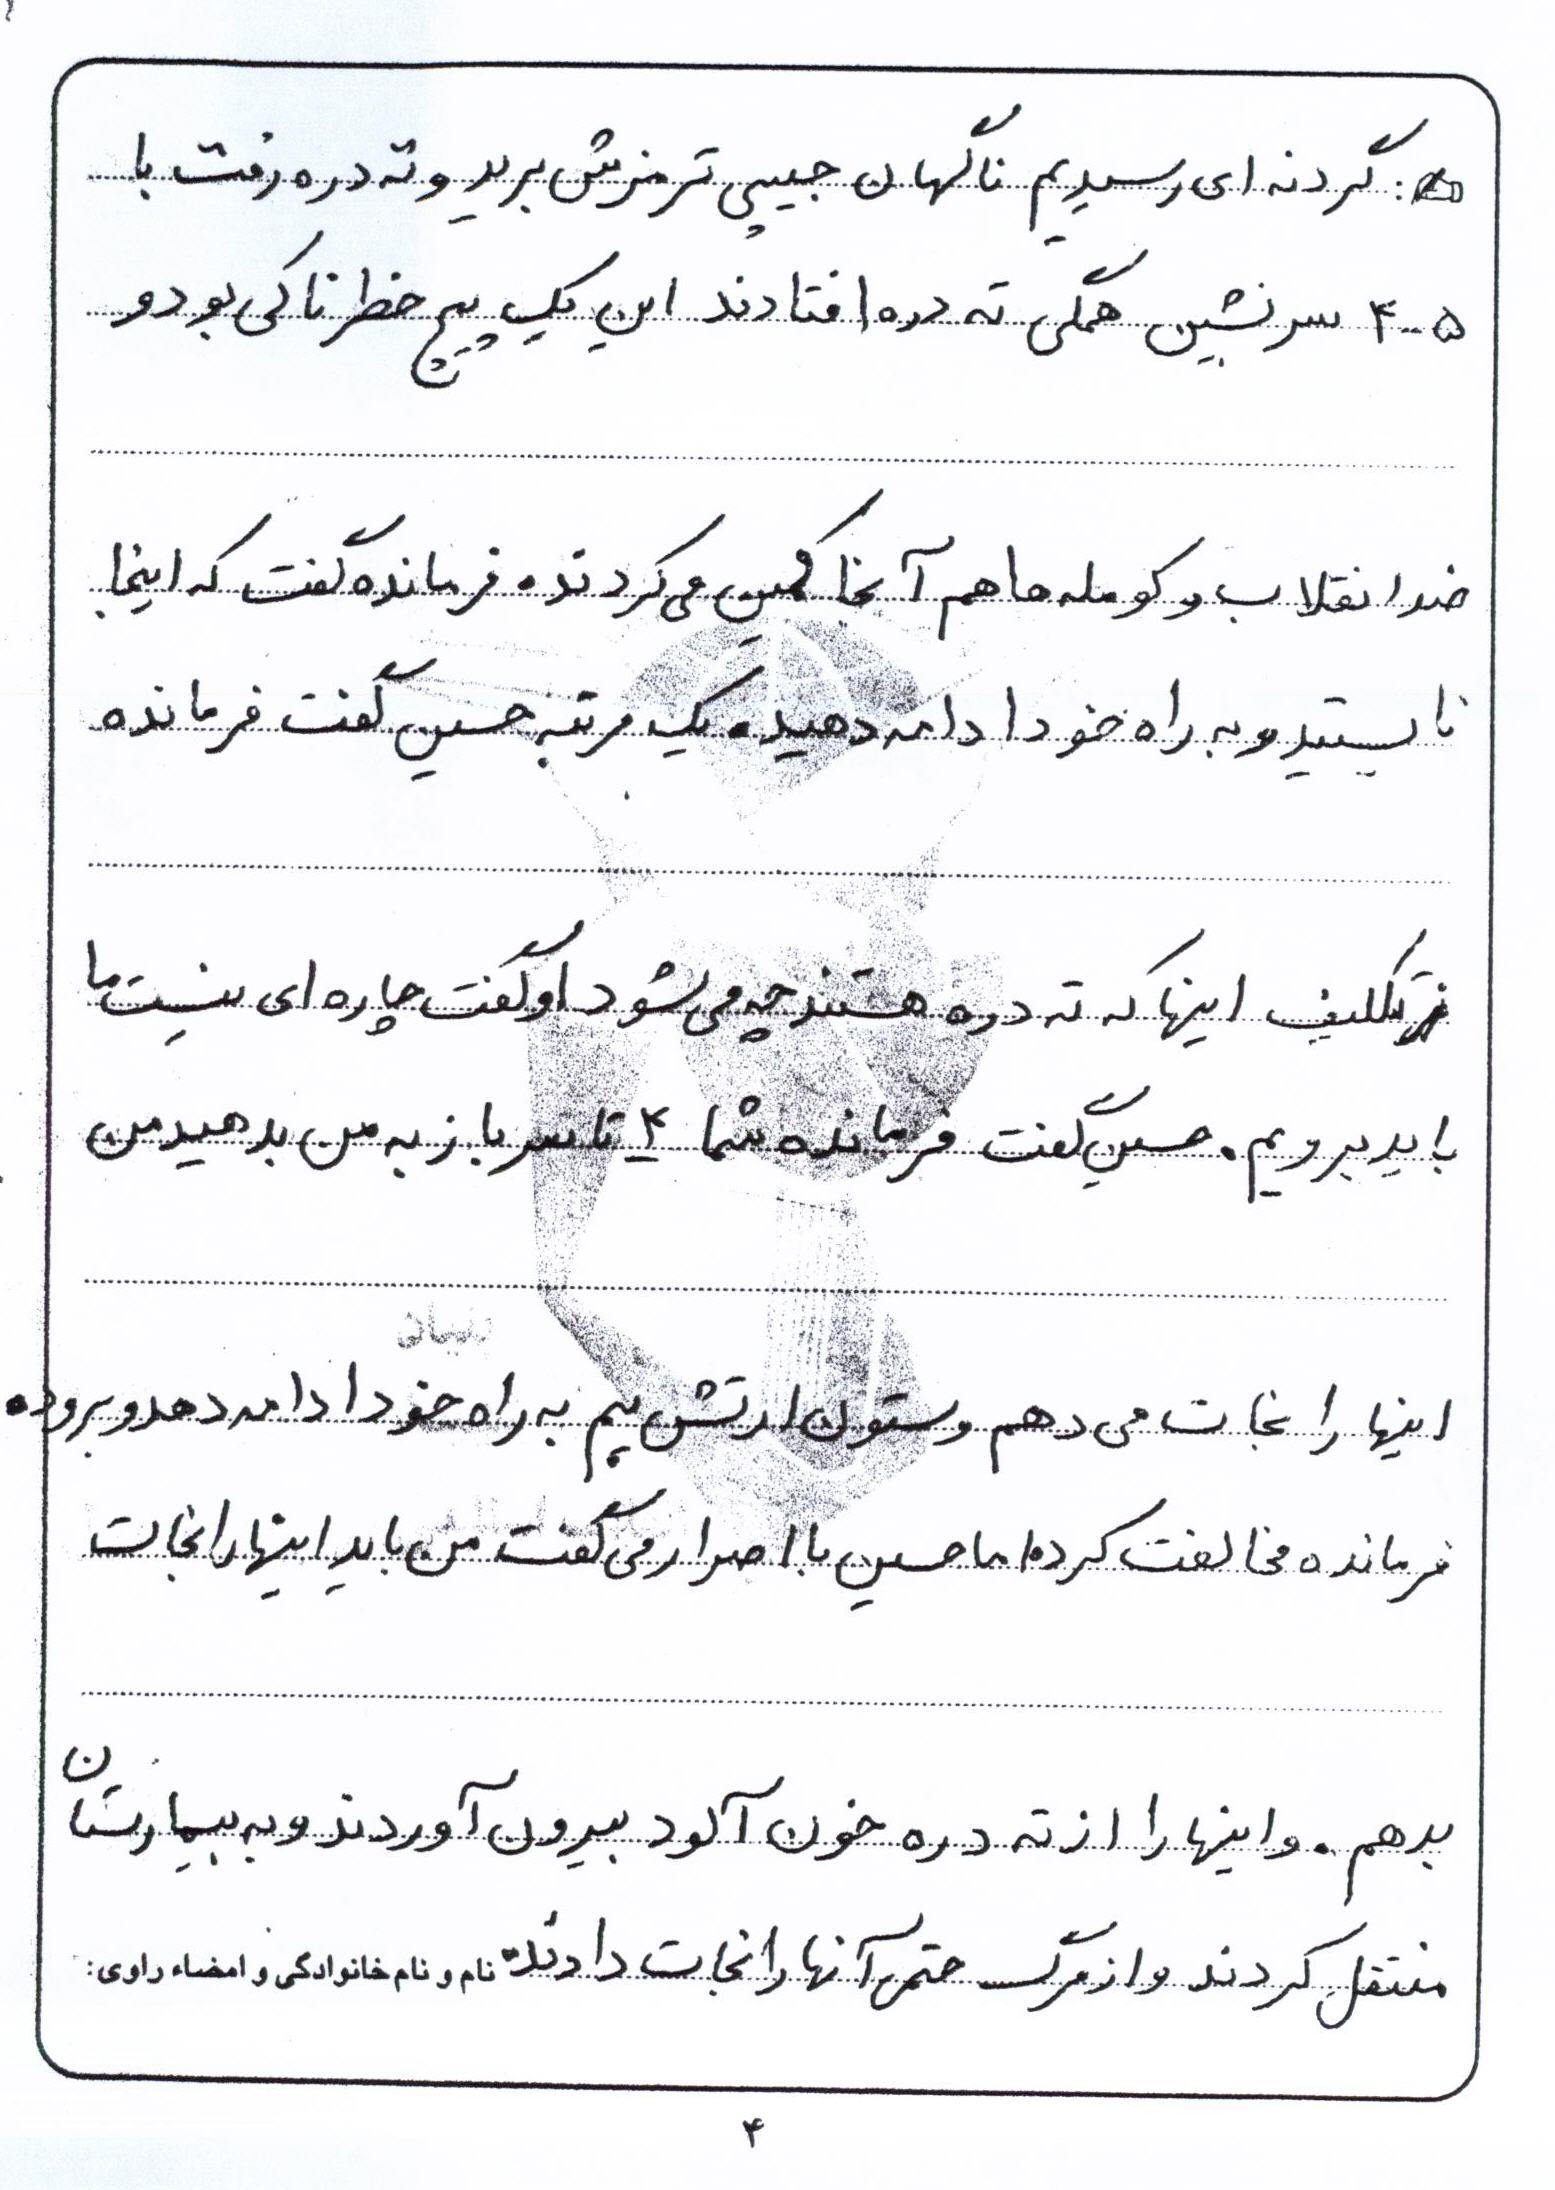 : گردنه ای رسیدیم ناگهان جیپی ترمزش برید و ته دره رفت با
۵-۴ سرنشین همگی ته دره افتادند این یک پیچ خطرناکی بود و
ضد انقلاب و کومله ها هم آنجا کمین می کردند. فرمانده گفت که اینجا
نایستید و به راه خود ادامه دهید. یک مرتبه حسین گفت فرمانده
تکلیف اینها که ته دره هستند چه می شود او گفت چاره ای نیست ما
باید برویم. حسین گفت فرمانده شما ۴ تا سرباز به من بدهید من
اینها را نجات می دهم و ستون ارتش هم به راه خود ادامه دهد و برود.
فرمانده مخالفت کرد اما حسین با اصرار می گفت من باید اینها را نجات
بدهم. و اینها را از ته دره خون آلود بیرون آوردند و به بیمارستان
منتقل کردند و از مرگ حتمی آنها را نجات دادند. نام و نام خانوادگی و امضاء راوی:
۴